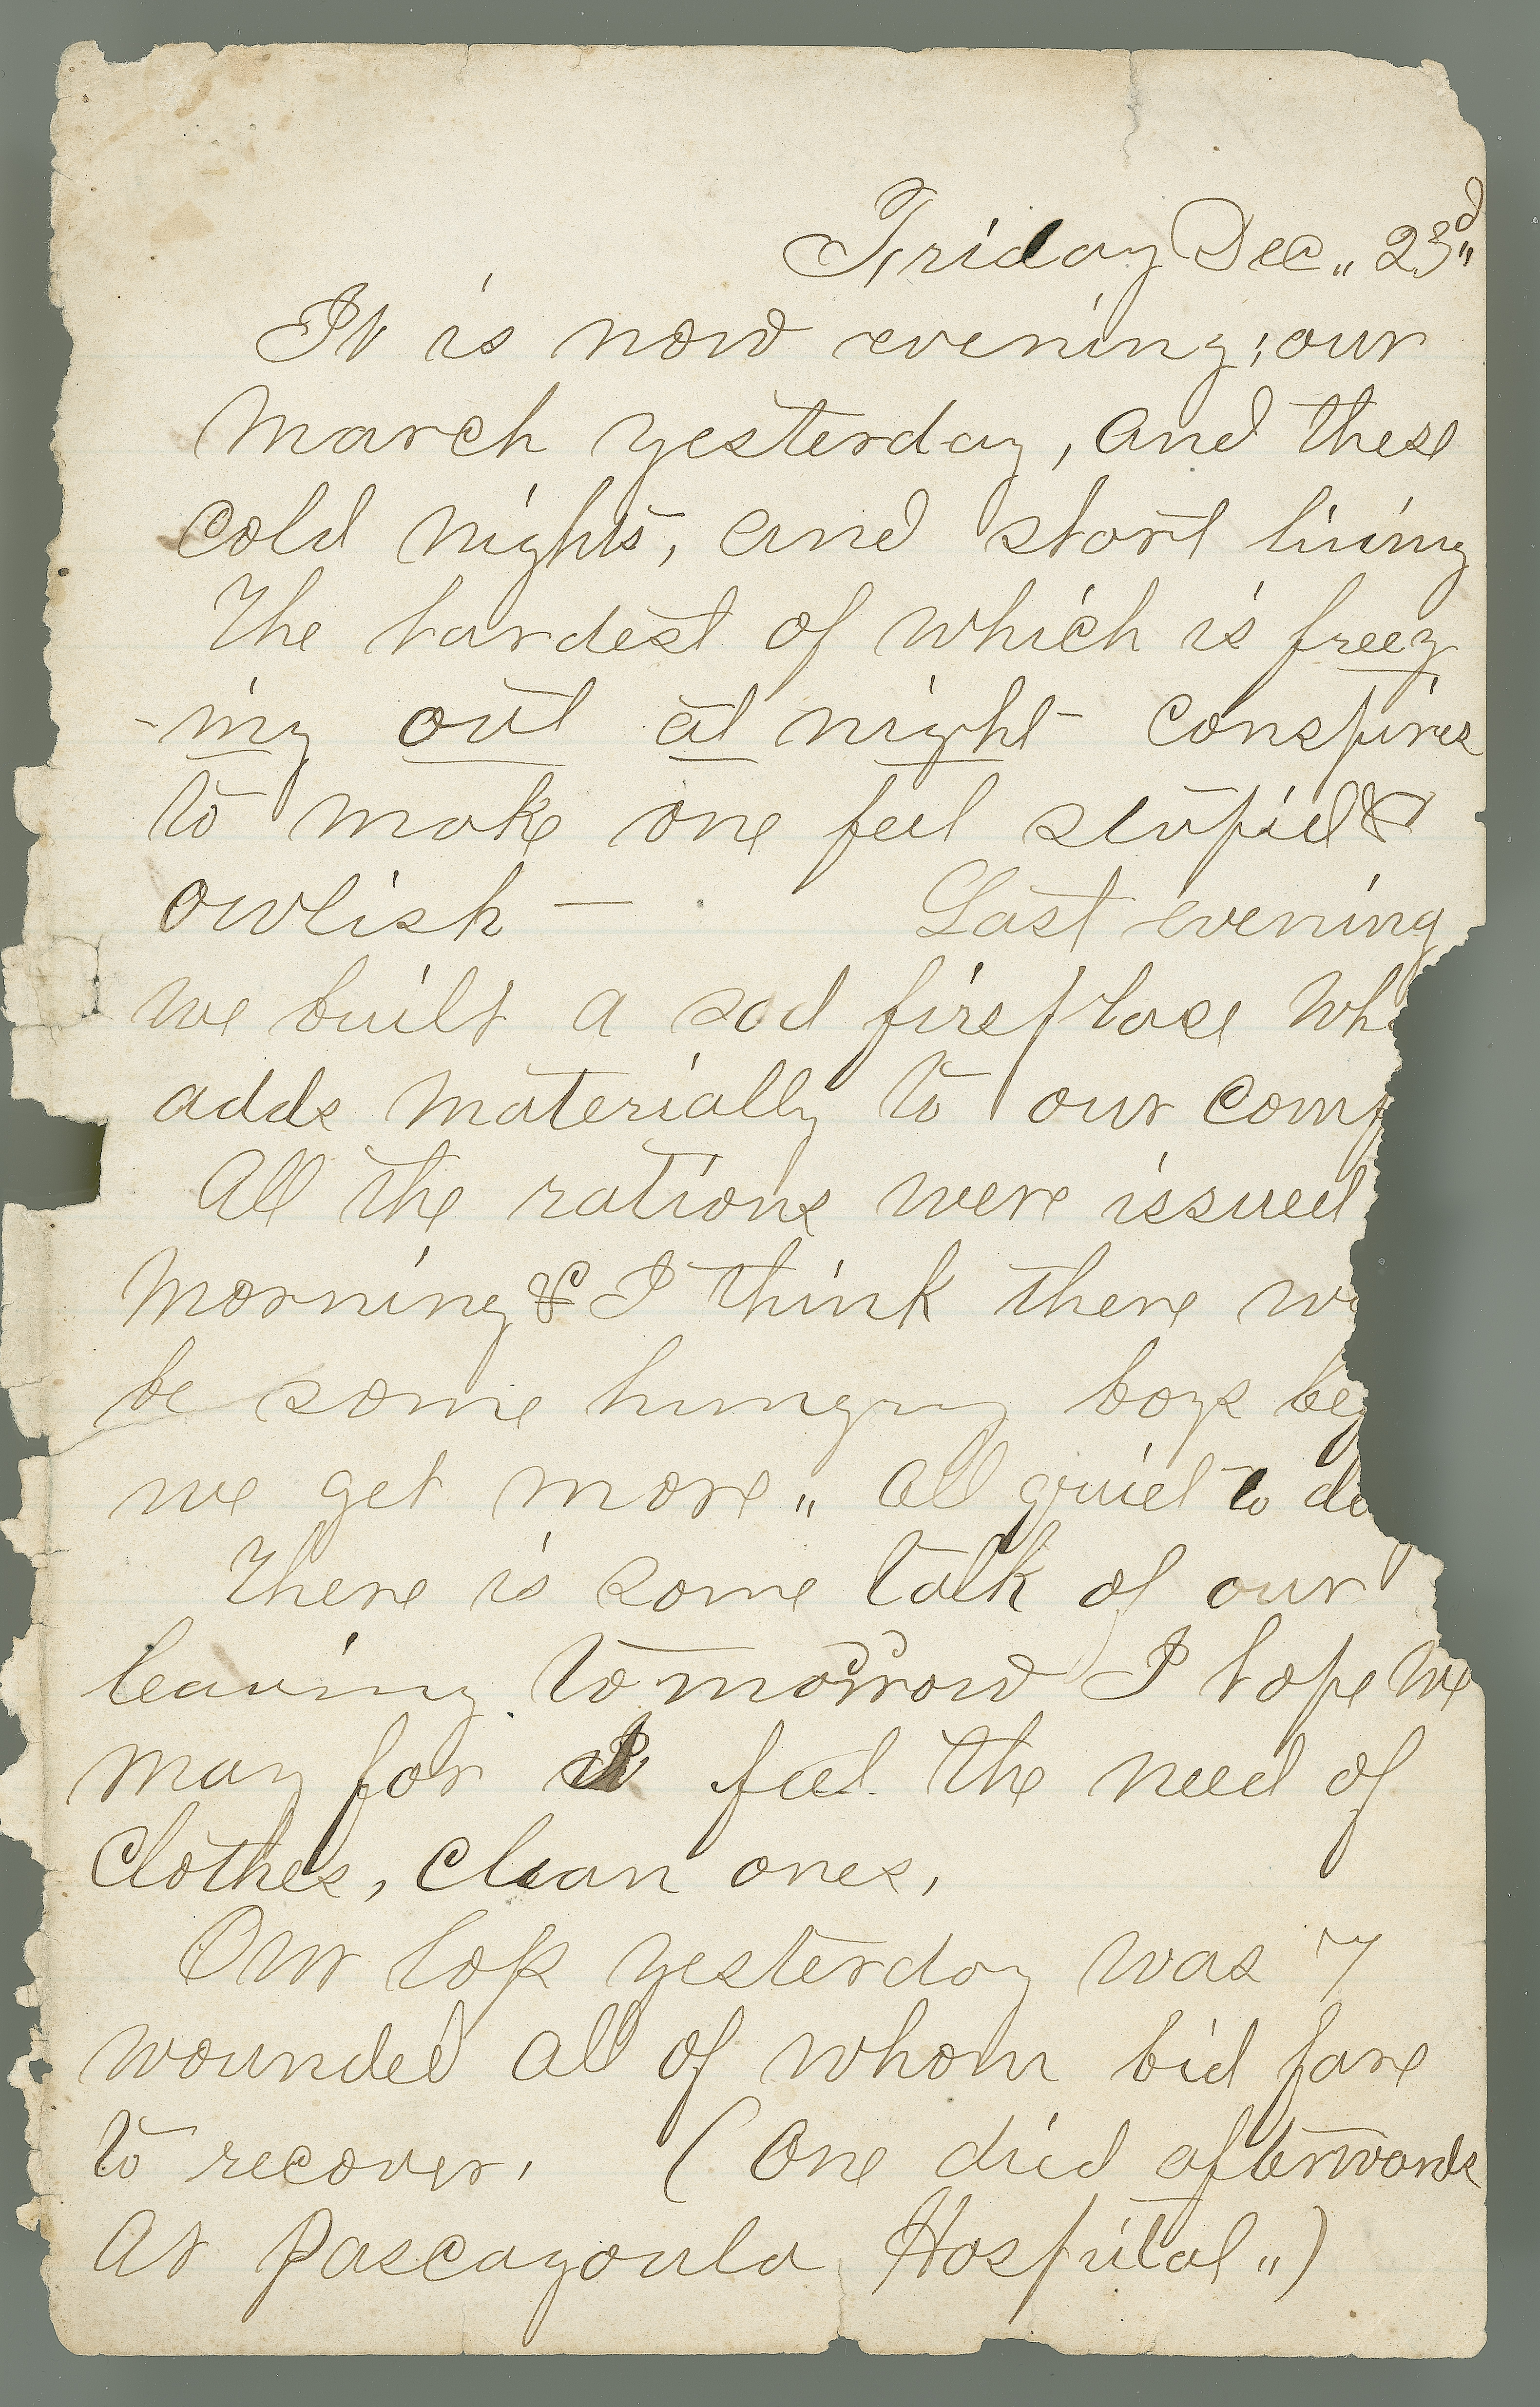 Friday Dec„ 23d„
It is now evening; our
march yesterday, and these
cold nights, and short living
The hardest of which is freez
-ing out at night - conspires
to make one feel stupid &
owlish — Last evening
we built a sod fireplace wh
adds materially to our comf
All the rations were issued
morning & I think there w
be some hungry boys be
we get more„ all quiet to da
There is some talk of our
leaving tomorrow I hope we
may for I feel the need of
clothes, clean ones,
Our loss yesterday was 7
wounded all of whom bid fare
to recover. (One died afterwards
At Pascagoula Hospital„)